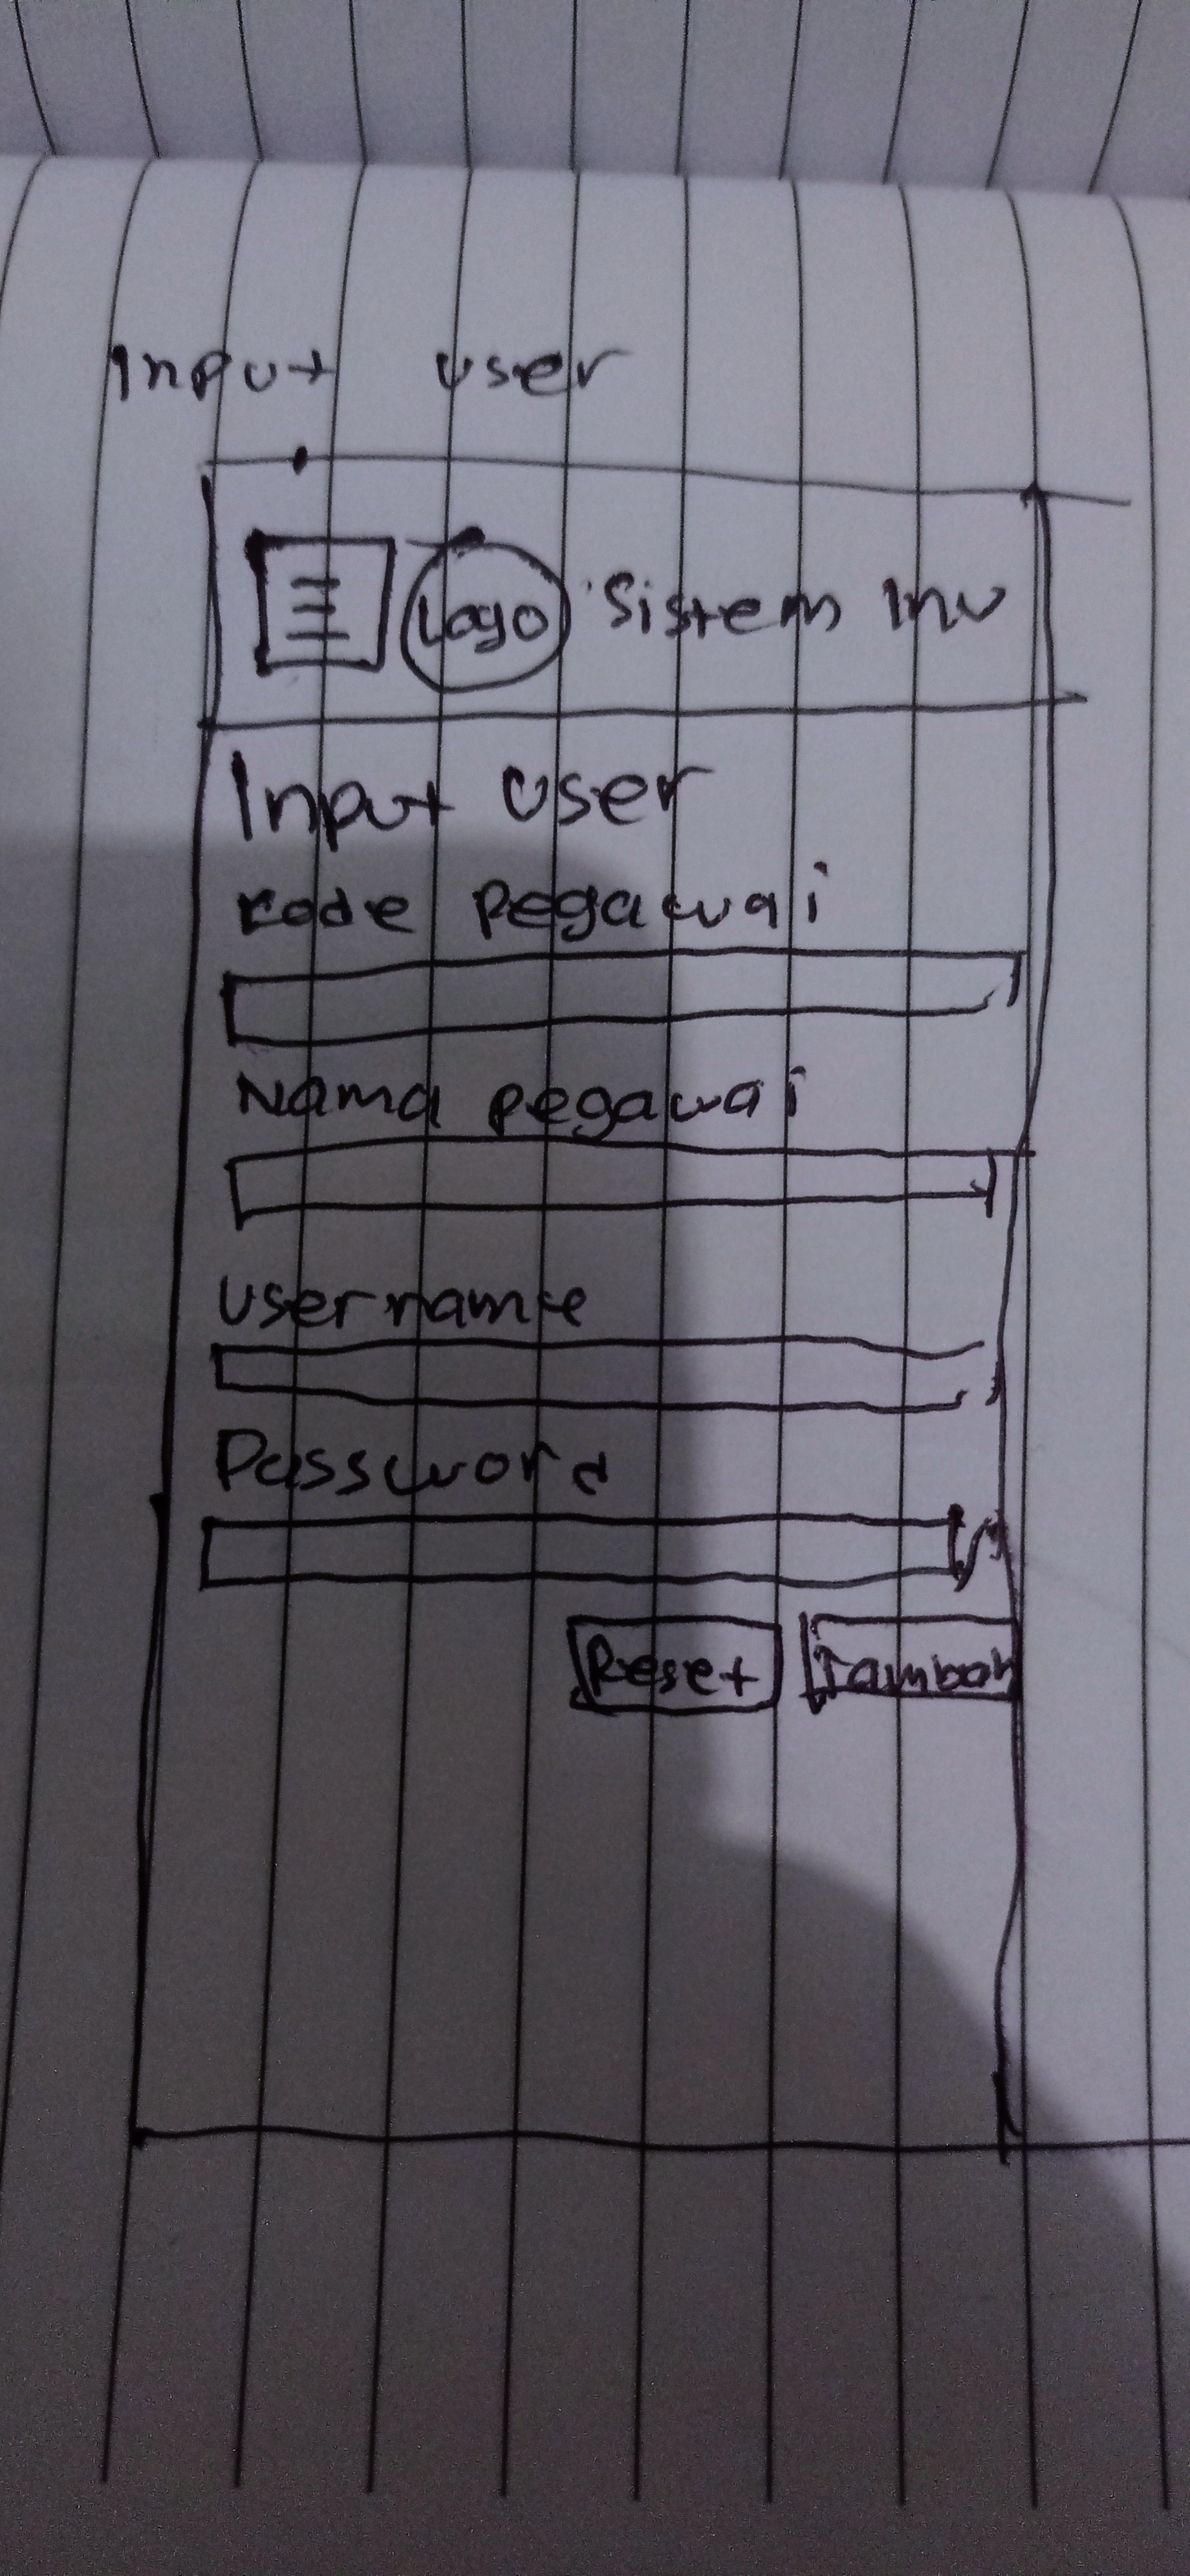 Input user
Logo Sistem Inv
Input user
Kode Pegawai
Nama pegawai
Username
Password
Reset Tambah